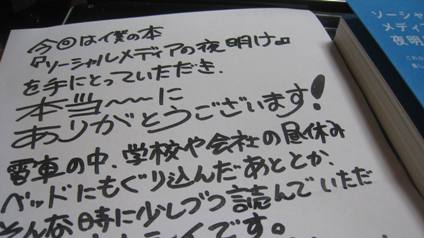 今回は僕の本
『ソーシャルメディアの夜明け』
を手にとっていただき、
本当〜〜に
ありがとうございます!
電車の中、学校や会社の昼休み
ベッドにもぐり込んだあととか、
そんな時に少しづつ読んでいただ
です。
ソーシャル
メディア
夜明け